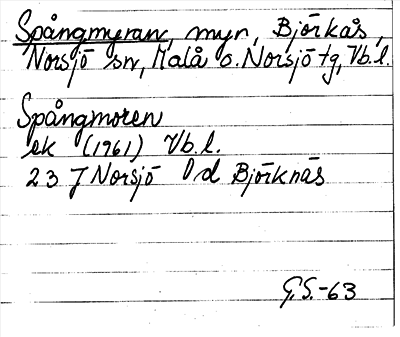 Spångmyran, myr, Björkås,
Norsjö sn, Malå o. Norsjö tg, Vb.l.
Spångmoren
ek (1961) Vb.l.
23 J Norsjö 0d Björknäs
G.S.-63